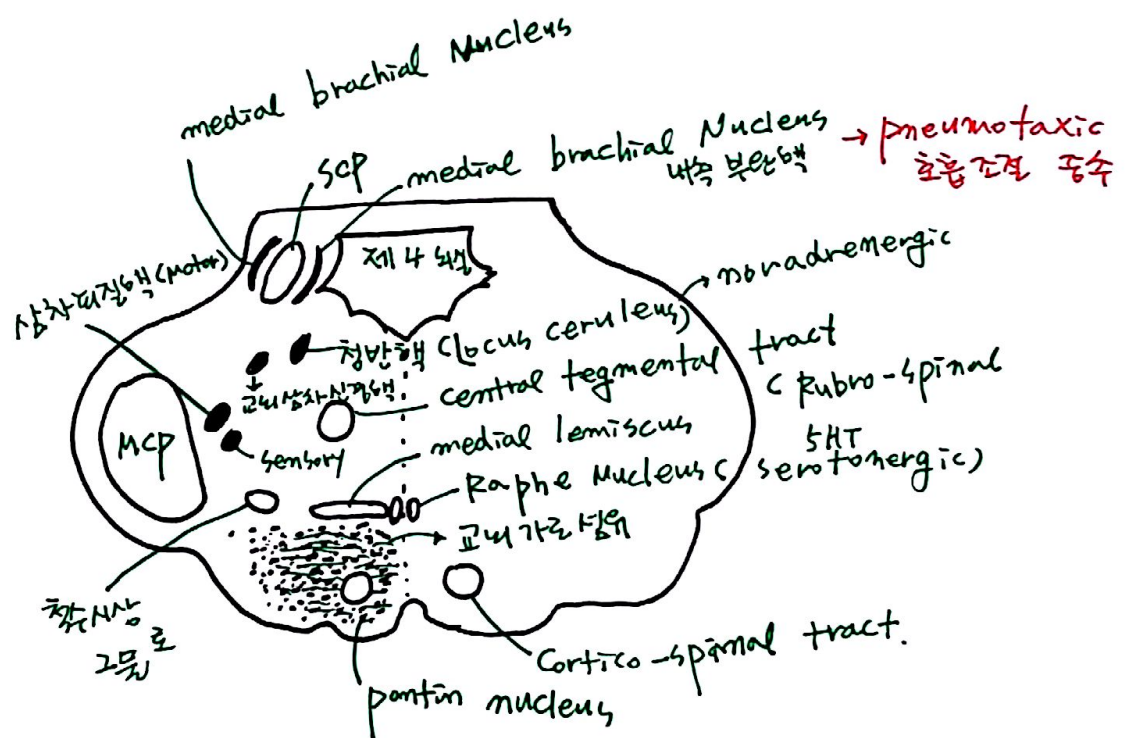 medial brachial Nucleus
SCP
medial brachial Nucleus → pneumotaxic
내측 부완핵
호흡조절 중추
제 4 뇌실
noradrenergic
삼차피질핵(Motor)
청반핵 (locus ceruleus)
교뇌삼차신경핵
central tegmental tract
( Rubro-spinal
MCP
sensory
medial lemiscus
5HT
Raphe Nucleus ( serotonergic)
교뇌가로섬유
척수시상
그물로
Cortico-spinal tract.
pontin nucleus